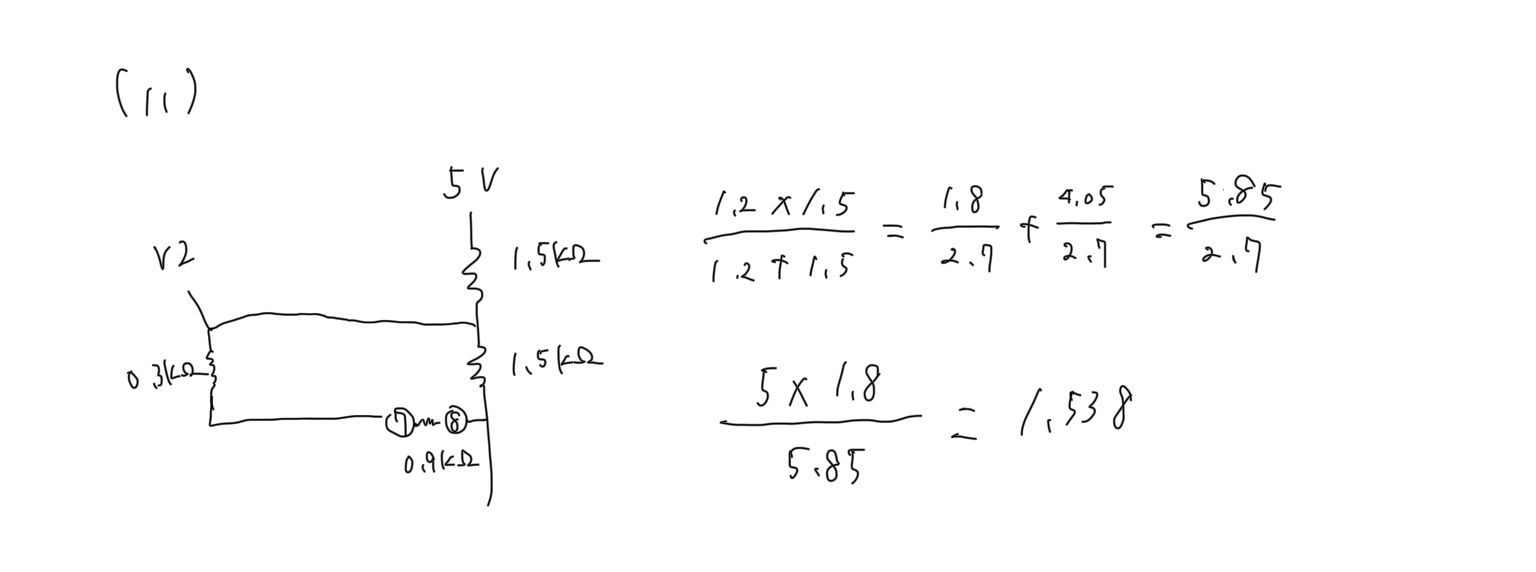 (11)
5 V
V2
1.5kΩ
0.3kΩ
1.5kΩ
⑦ ⑧
0.9kΩ
1.2 × 1.5 / 1.2 + 1.5 = 1.8 / 2.7 + 4.05 / 2.7 = 5.85 / 2.7
5 × 1.8 / 5.85 = 1.538